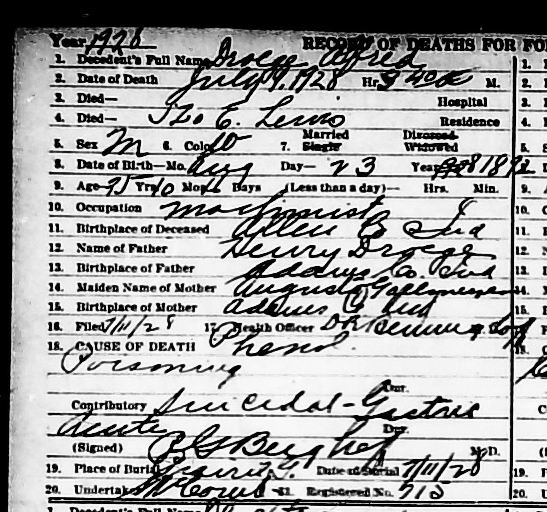 Year 1928 RECORD OF DEATHS FOR FO
1. Decedent's Full Name Droege Alfred
2. Date of Death July 9, 1928 Hr. M.
3. Died— Hospital
4. Died— 720 E. Lewis Residence
5. Sex M 6. Color W 7. Married Single Divorced Widowed
8. Date of Birth—Mo. Aug Day— 23 Year 1892
9. Age Yrs. 10 Mos. Days (Less than a day)— Hrs. Min.
10. Occupation Machinist
11. Birthplace of Deceased Allen Co Ind
12. Name of Father Henry Droege
13. Birthplace of Father Adams Co. Ind
14. Maiden Name of Mother Augusta Gallmeyer
15. Birthplace of Mother Adams Co Ind
16. Filed 7/11/28 17. Health Officer DR
18. CAUSE OF DEATH Phenol
Poisoning
Dur.
Contributory Suicidal - Gastric
Acute Dur.
(Signed) M. D.
19. Place of Burial Date of Burial 7/11/28
20. Undertaker 21. Registered No. 715
1. Decedent's Full Name